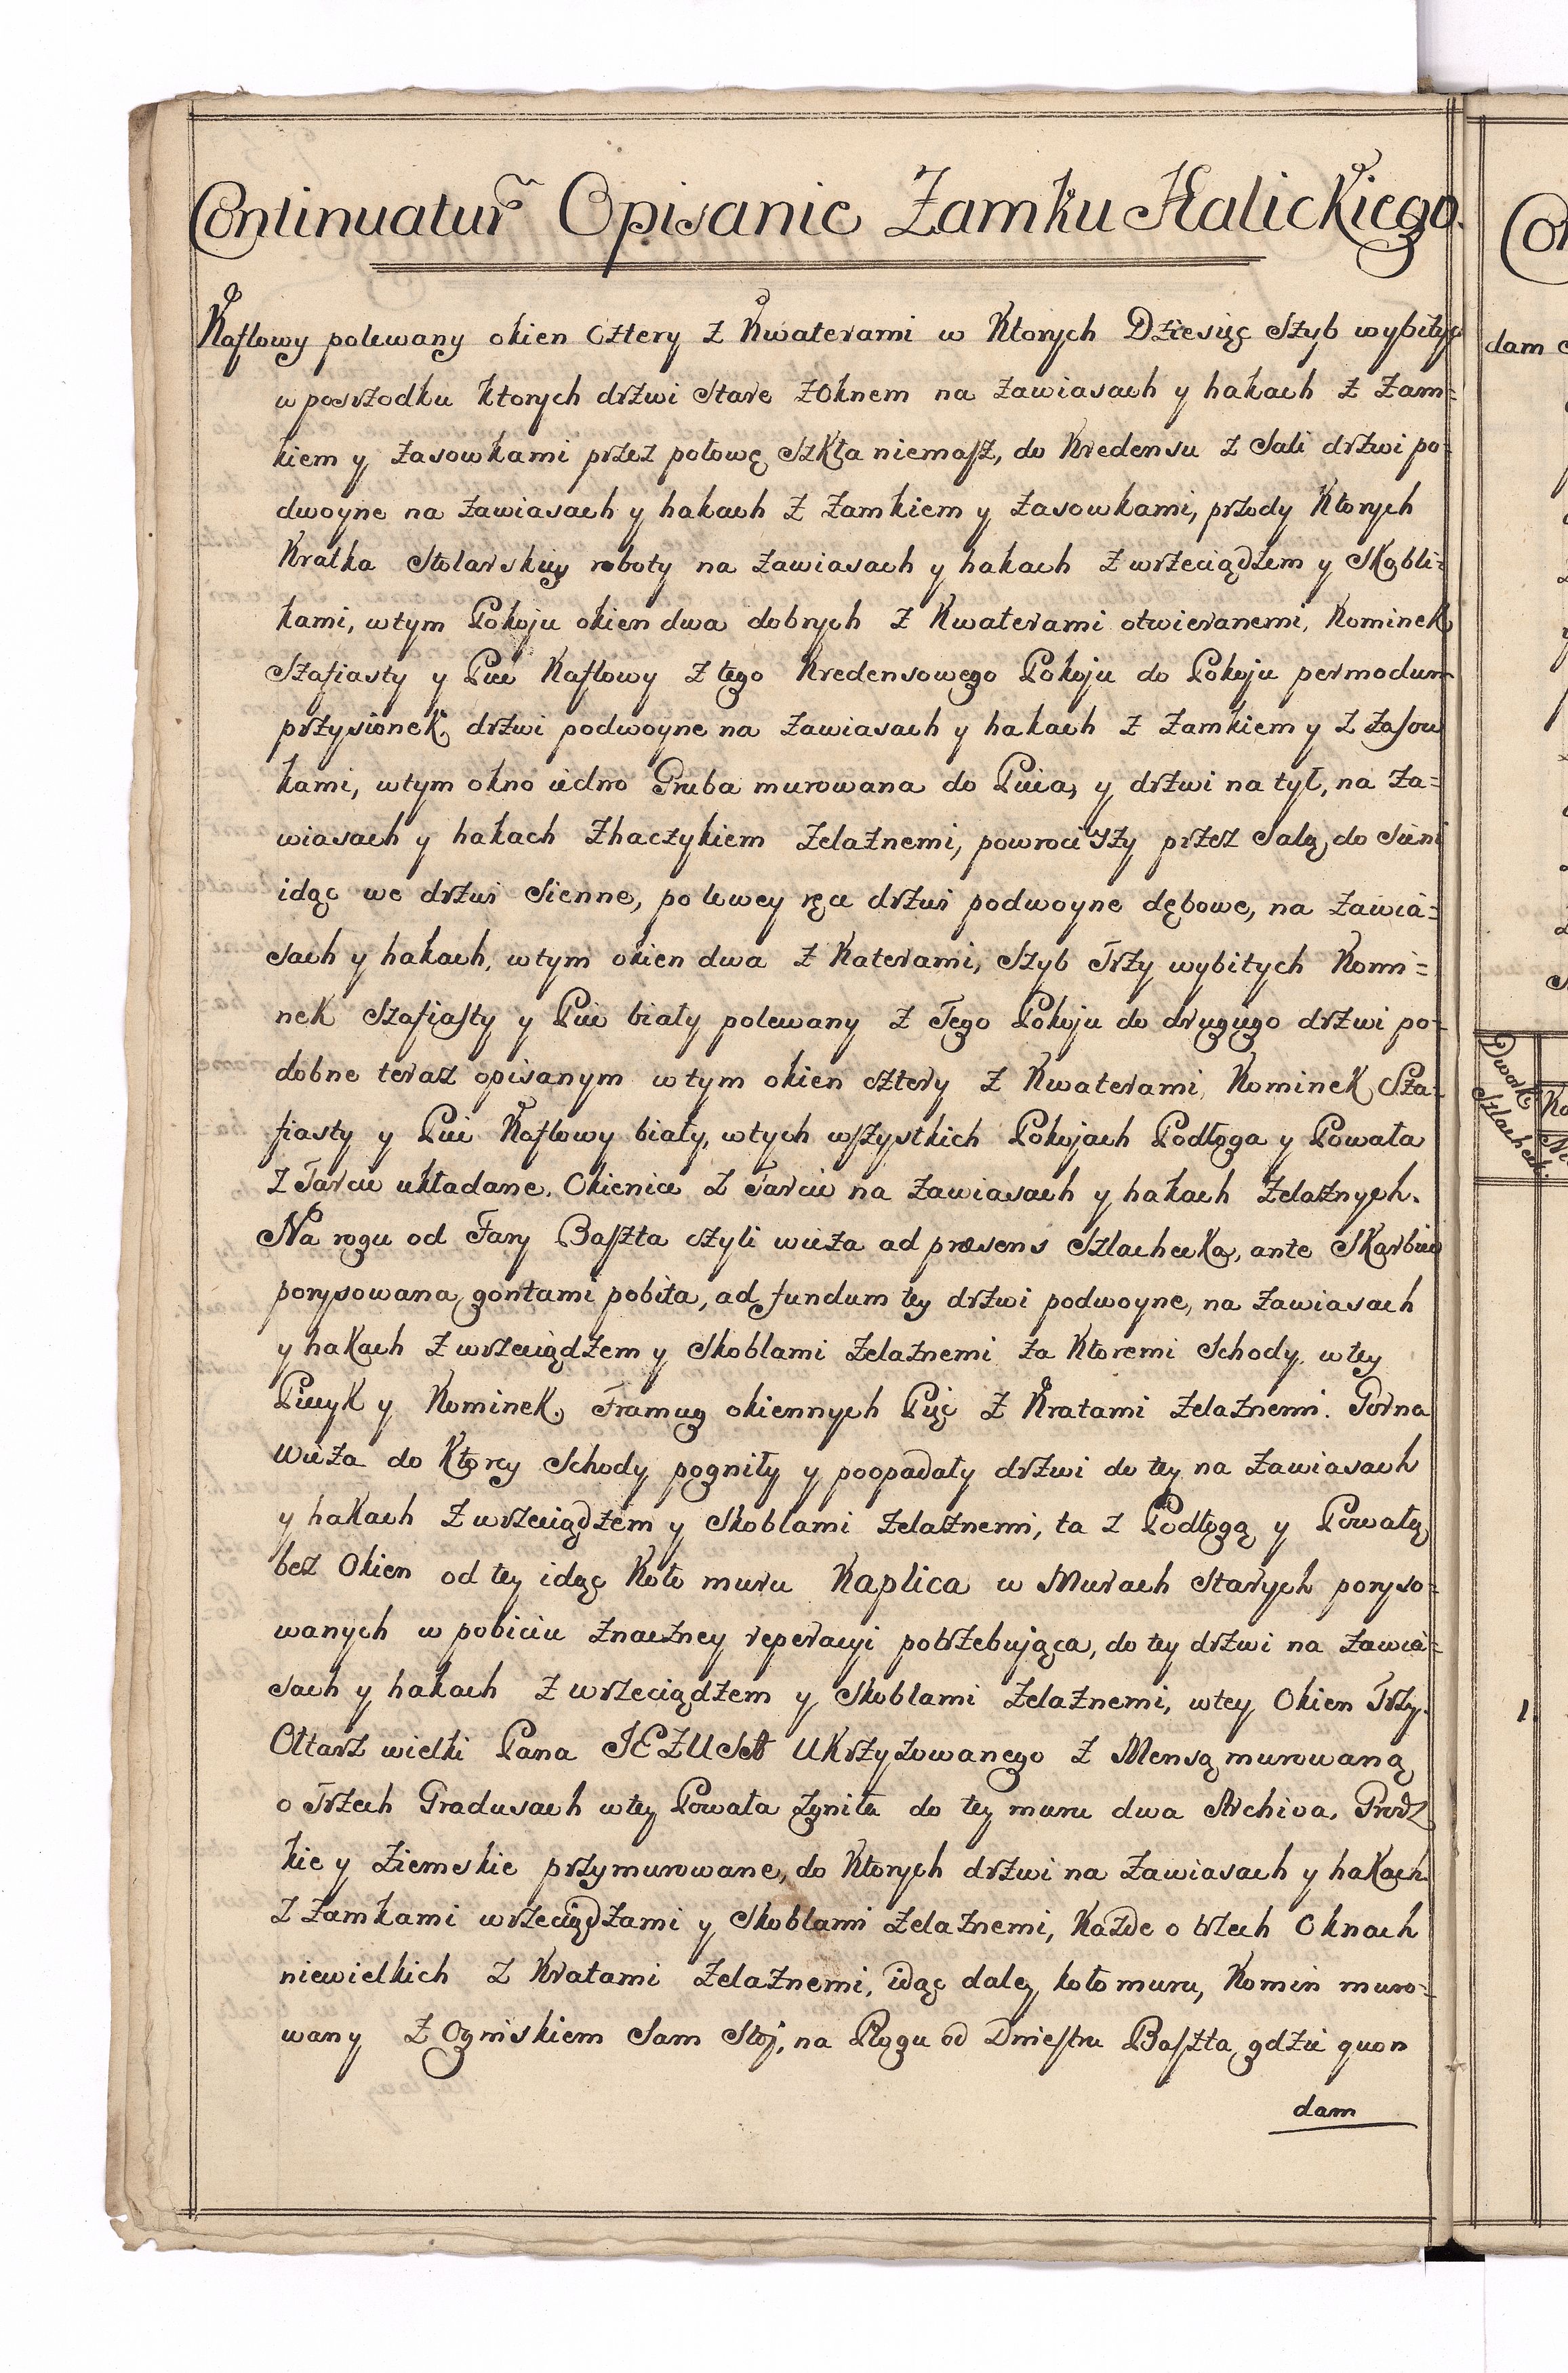 Continuatur Opisanie Zamku Halickiego.
Kaflowy polewany okien cztery z Kwaterami w Ktorych Dziesięć Szyb wybitych
w posrzodku ktorych drzwi Stare z Oknem na zawiasach y hakach z zam=
kiem y zasowkami przez połowę Szkła niemasz, do Kredensu z Sali drzwi po=
dwoyne na zawiasach y hakach z zamkiem y zasowkami, przody Ktorych
Kratka Stolarskiey roboty na zawiasach y hakach z wrzeciądzem y Skobli=
kami, w tym Pokoju okien dwa dobrych z Kwaterami otwieranemi, Kominek
Szafiasty y Piec Kaflowy z tego Kredensowego Pokoju do Pokoju per modum
przysionek, drzwi podwoyne na zawiasach y hakach z zamkiem y z zasow
kami, w tym okno iedno Gruba murowana do Pieca, y drzwi na tył, na za=
wiasach y hakach z haczykiem zelaznemi, powrociwszy przez Salę do Sieni
idąc we drzwi Sienne, po lewey ręce drzwi podwoyne dębowe, na zawia=
sach y hakach, w tym okien dwa z Katerami, Szyb Trzy wybitych Komi=
nek Szafiasty y Piec biały polewany z Tego Pokoju do drugiego drzwi po=
dobne teraz opisanym w tym okien cztery z Kwaterami, Kominek Sza=
fiasty y Piec Kaflowy biały, w tych wszystkich Pokojach Podłoga y Powała
z Tarcic układane. Okienice z Tarcic na zawiasach y hakach zelaznych.
Na rogu od Fary Baszta czyli wieża ad præsens Szlachecka, ante Skarbiec
porysowana, gontami pobita, ad fundum tey drzwi podwoyne, na zawiasach
y hakach z wrzeciądzem y Skoblami zelaznemi za Ktoremi Schody, w tey
Piecyk y Kominek, Framug okiennych Pięć z Kratami zelaznemi. Gorna
Wieża do Ktorey Schody pogniły y poopadały drzwi do tey na zawiasach
y hakach z wrzeciądzem y Skoblami zelaznemi, ta z Podłogą y Powałą
bez Okien od tey idąc Koło muru Kaplica w Murach Starych poryso=
wanych w pobiciu znaczney reperacyi potrzebująca, do tey drzwi na zawia=
sach y hakach z wrzeciądzem y Skoblami zelaznemi, w tey Okien Trzy.
Ołtarz wielki Pana JEZUSA Ukrzyzowanego z Mensą murowaną
o Trzech Gradusach w tey Powała zgniła do tey muru dwa Archiva, Grodz
kie y Ziemskie przymurowane, do Ktorych drzwi na zawiasach y hakach
z zamkami wrzeciądzami y Skoblami zelaznemi, Każde o trzech Oknach
niewielkich z Kratami zelaznemi, idąc daley koło muru, Komin muro=
wany z Ogniskiem Sam Stoj, na Rogu od Dniestru Baszta, gdzie quon
dam
Con
dam
Dwork
Szlachecki
1.